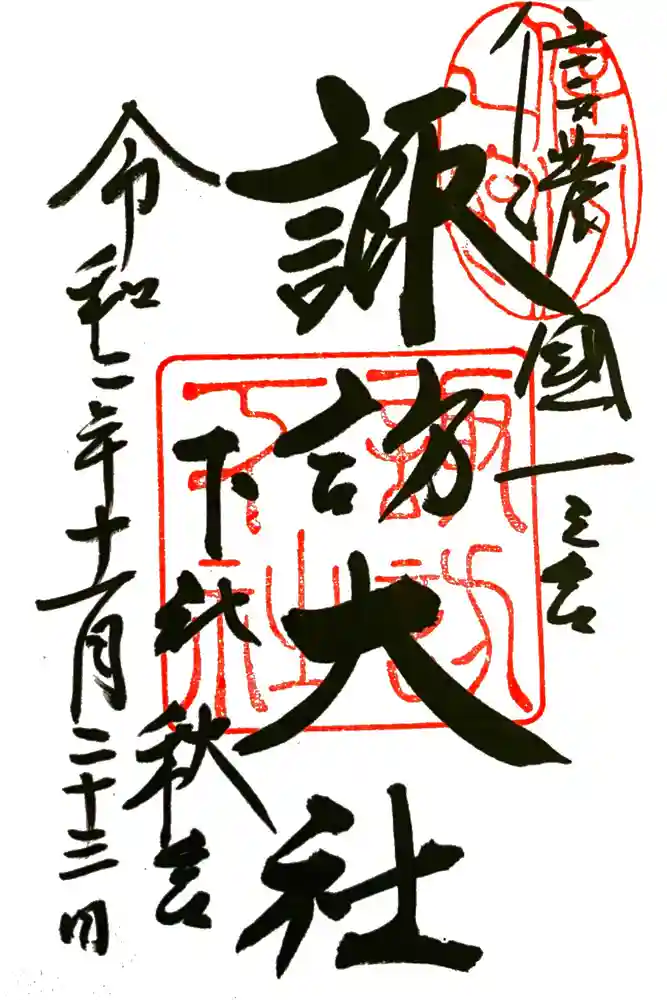 信濃國一之宮
諏訪大社
下社秋宮
令和二年十一月二十三日
諏訪
下社